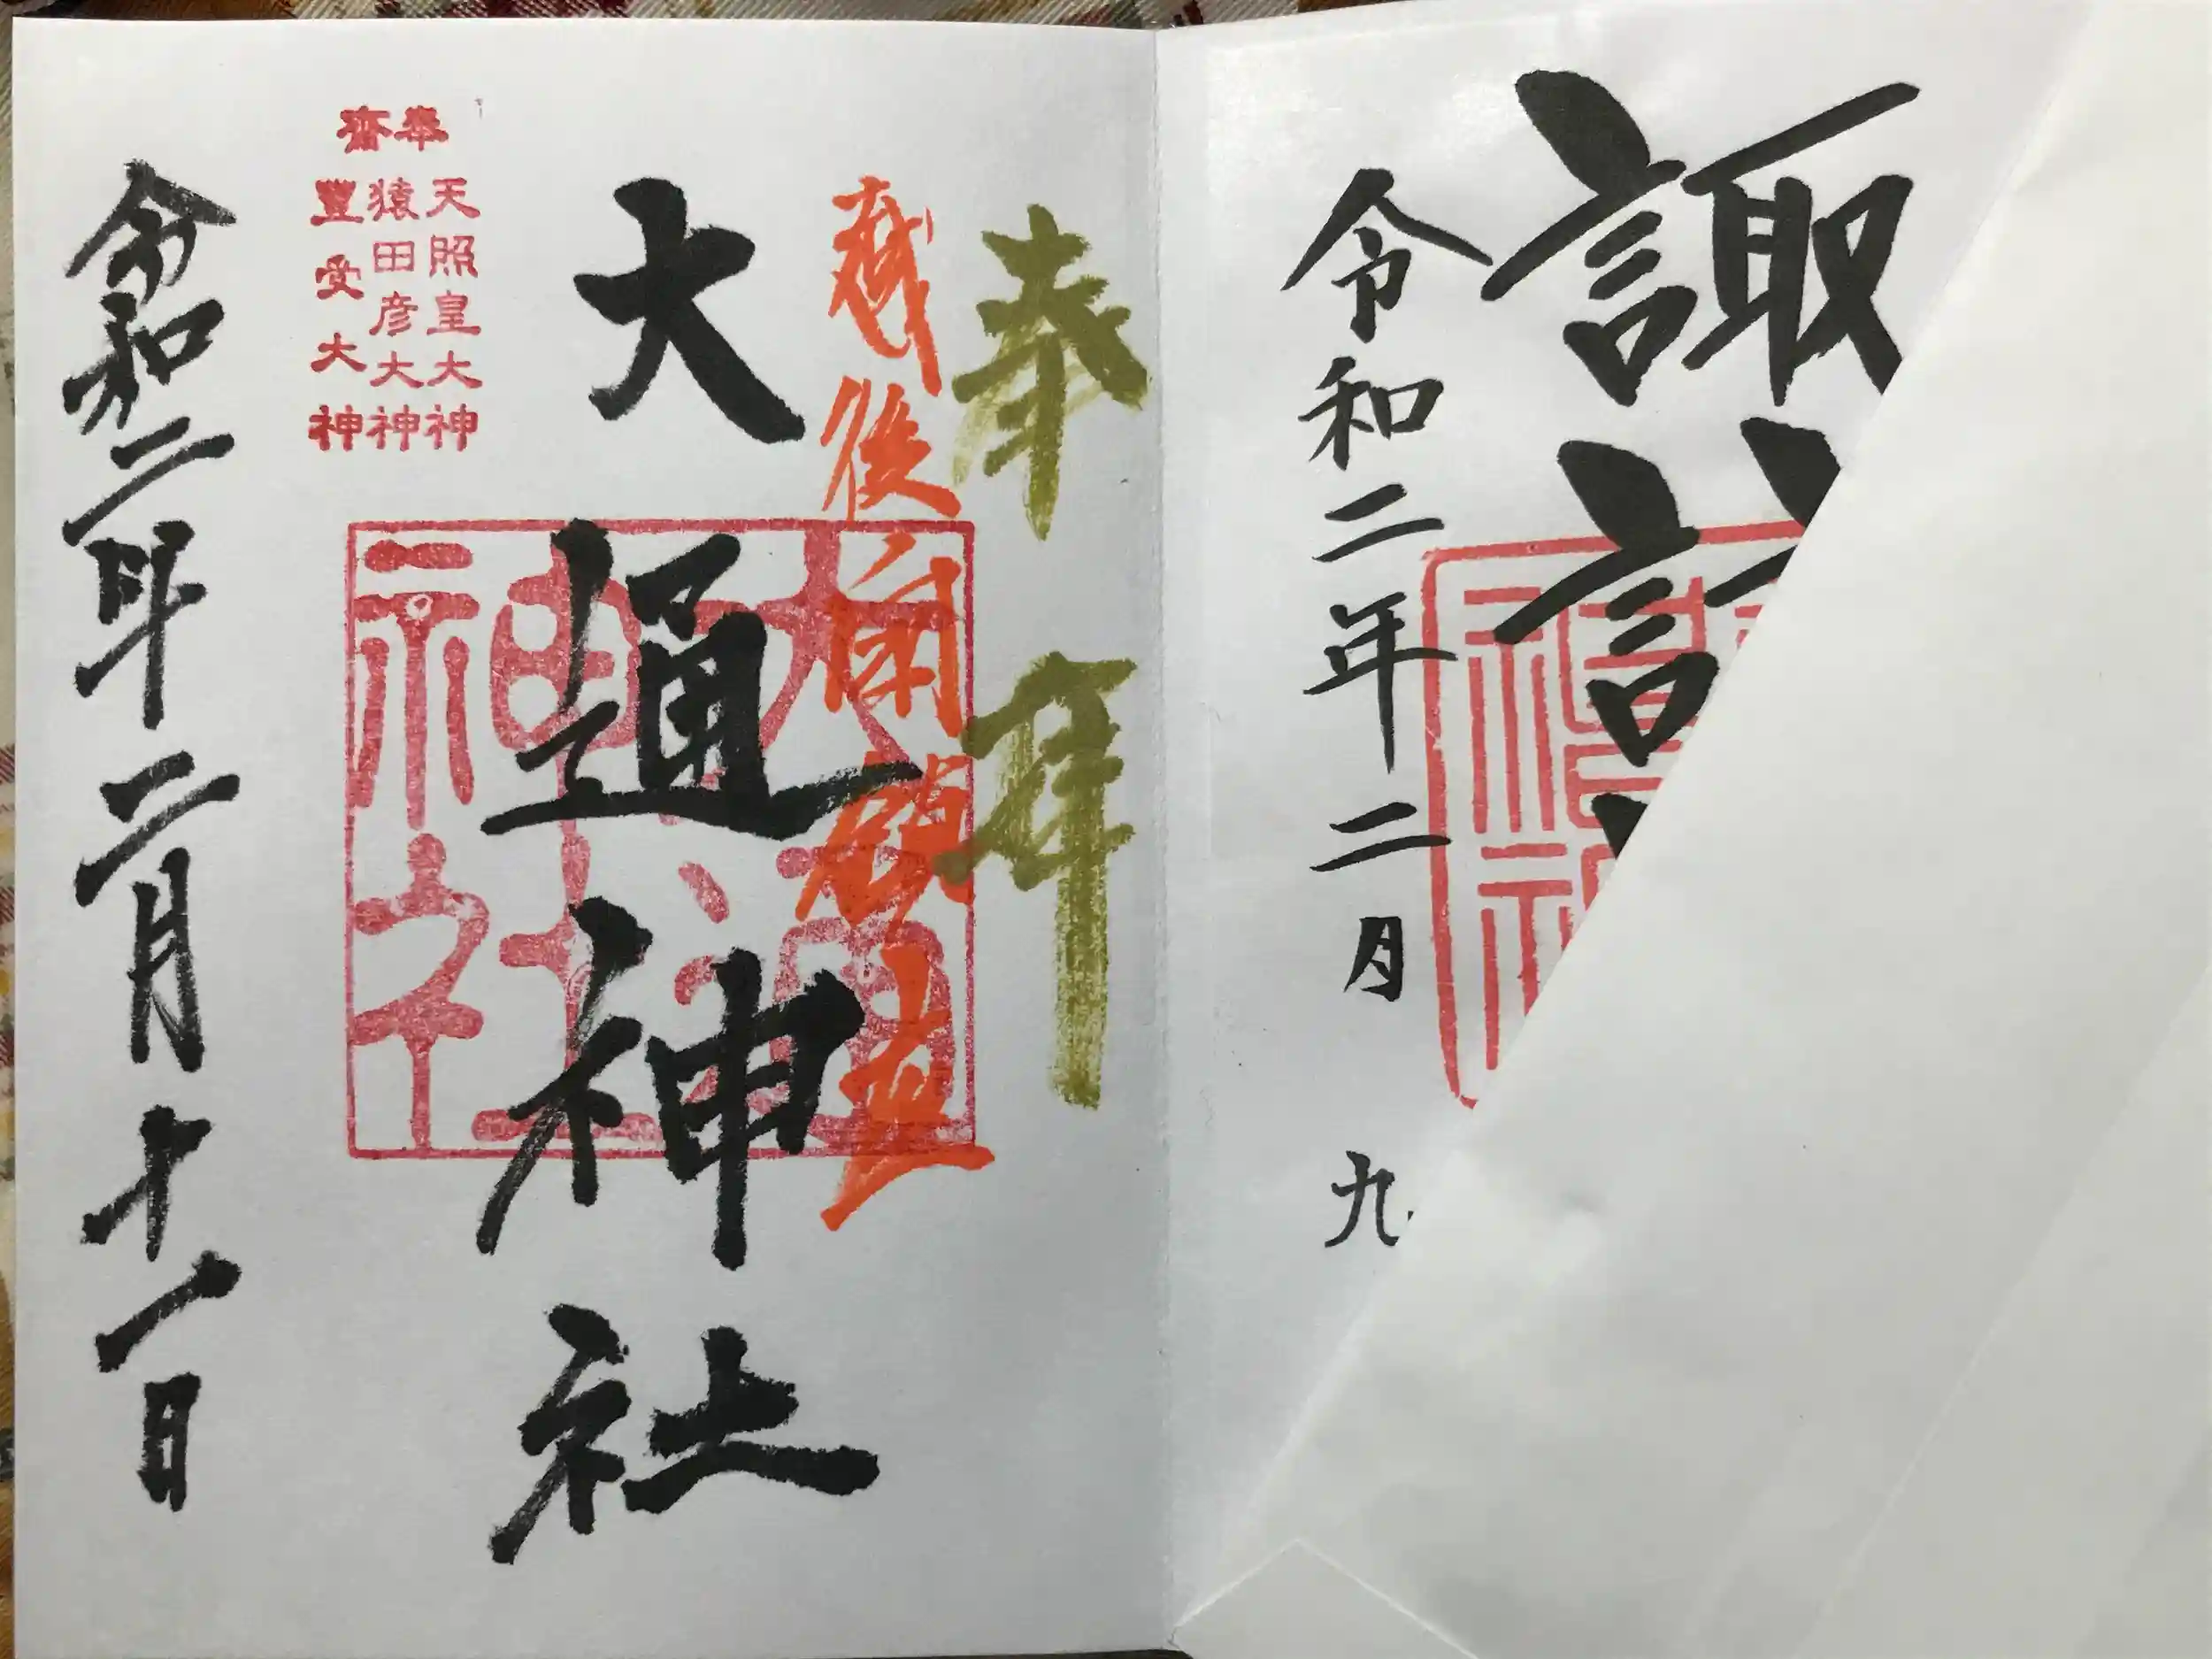 諏
令和二年二月九
奉拝
大通神社
大通神社
奉齋
天照皇大神
猿田彦大神
豊受大神
令和二年二月十一日